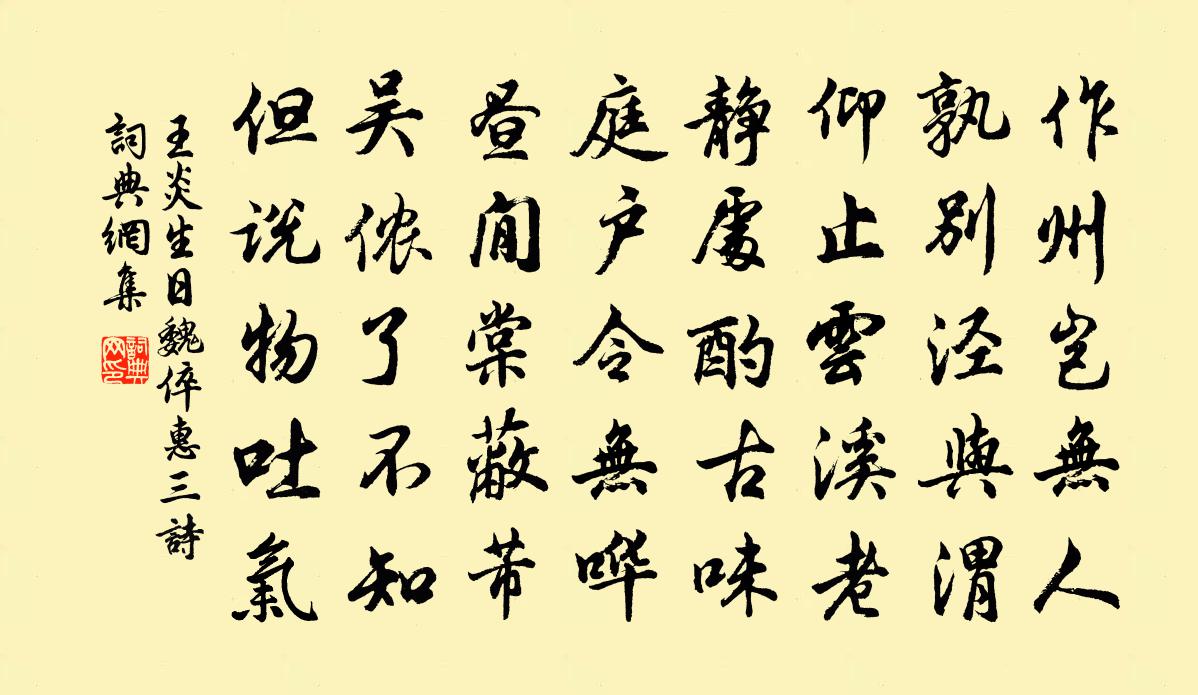 作州岂無人
孰别泾與渭
仰止雲溪老
静處酌古味
庭户令無哗
昼閒棠蔽芾
吴侬了不知
但说物吐氣
王炎生日魏倅惠三詩
詞典網集